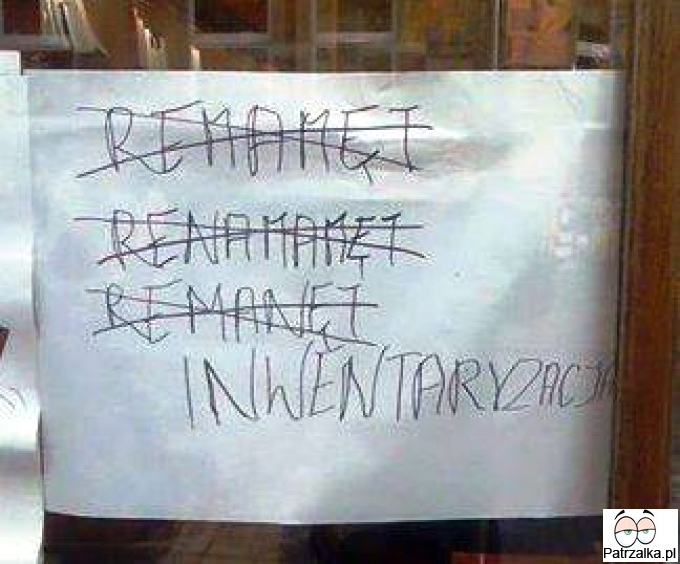 REMAMĘT
RENAMAMĘT
REMANĘT
INWENTARYZACJA
Patrzalka.pl